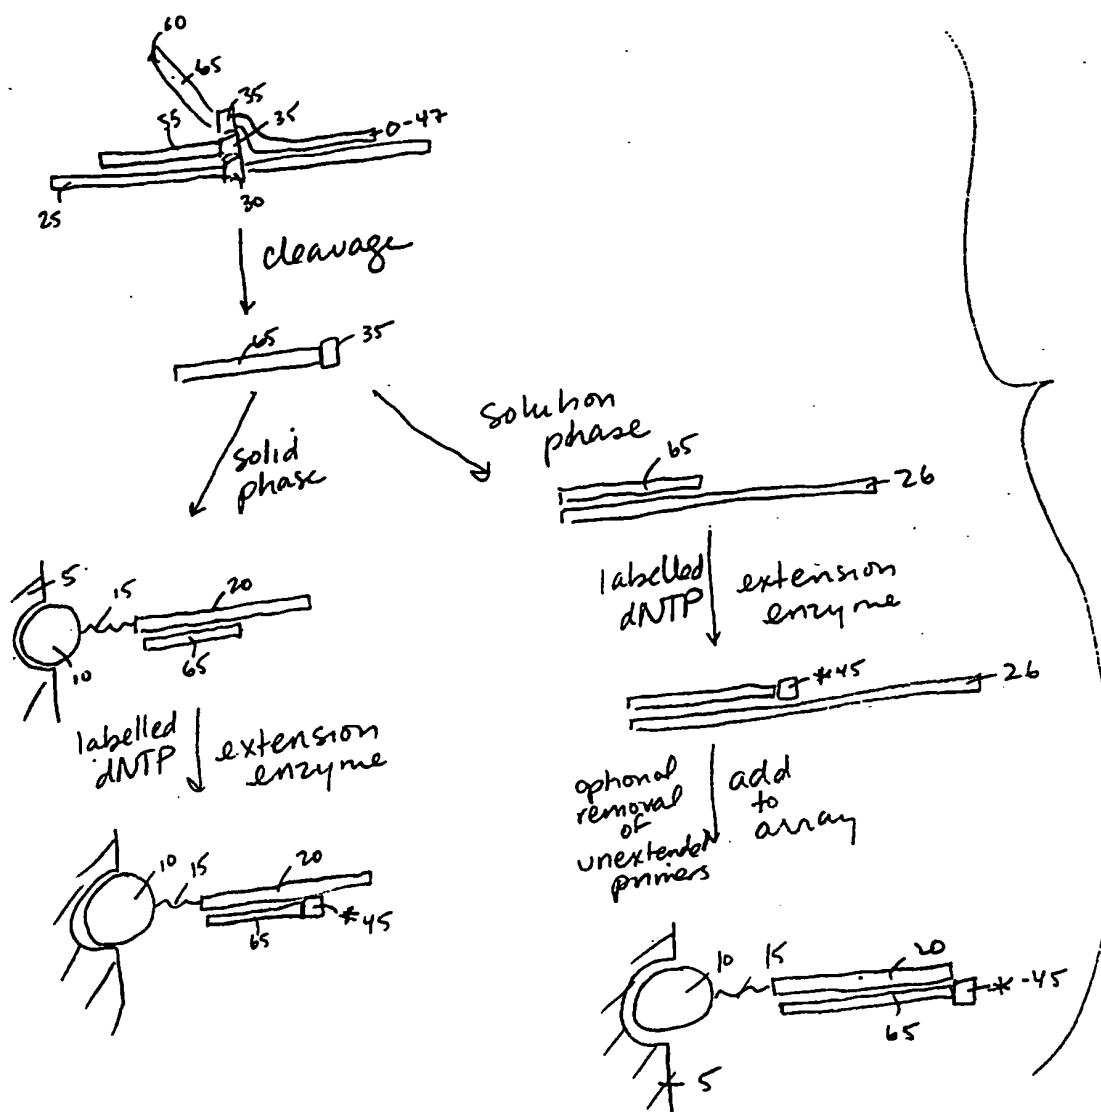 60
65
35
55
35
0-47
25
30
cleavage
65
35
solid
phase
solution
phase
65
26
5
15
20
10
65
labelled
dNTP
extension
enzyme
labelled
dNTP
extension
enzyme
*45
26
optional
removal
of
unextended
primers
add
to
array
10
15
20
65
*45
10
15
20
65
*-45
5